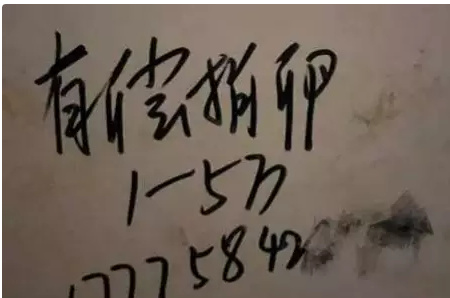 有偿捐卵
1-5万
17775842